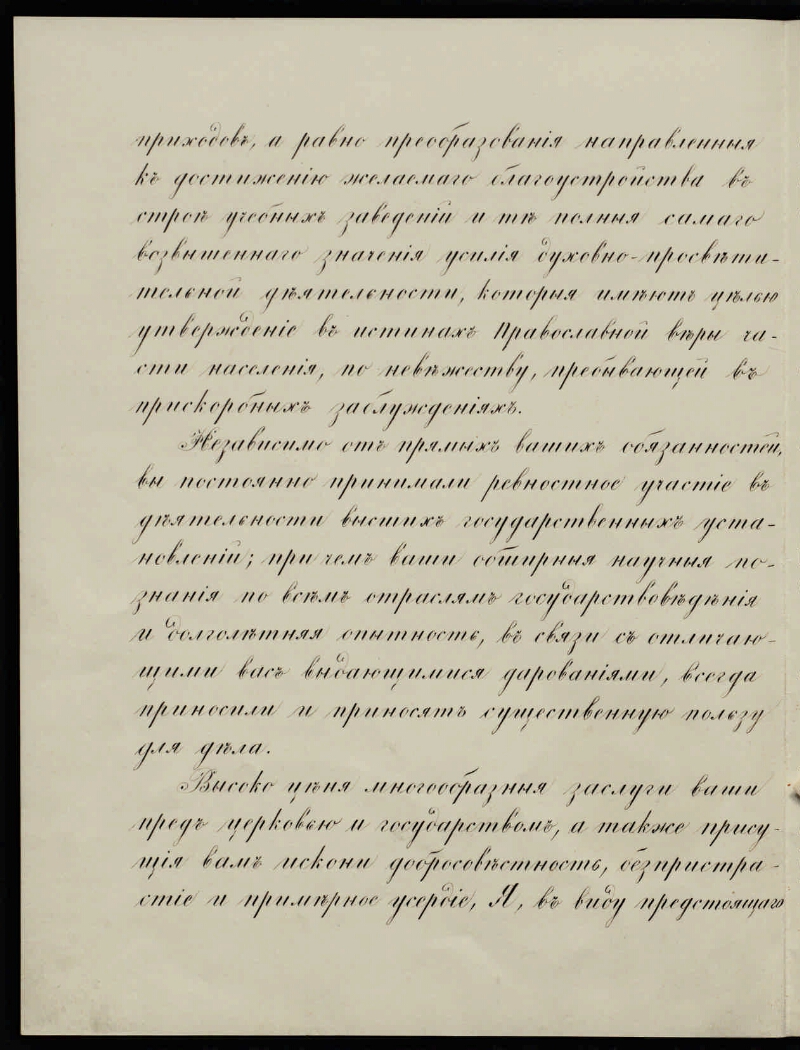 приходовъ, а равно преобразованія направленныя
къ достиженію желаемаго благоустройства въ
строѣ учебныхъ заведеній и тѣ полныя самаго
возвышеннаго значенія усилія духовно-просвѣти-
тельной дѣятельности, которыя имѣютъ цѣлью
утвержденіе въ истинахъ Православной вѣры ча-
сти населенія, по невѣжеству, пребывающей въ
прискорбныхъ заблужденіяхъ.
Независимо отъ прямыхъ вашихъ обязанностей,
вы постоянно принимали ревностное участіе въ
дѣятельности высшихъ государственныхъ уста-
новленій; при чемъ ваши обширныя научныя по-
знанія по всѣмъ отраслямъ государствовѣдѣнія
и долголѣтняя опытность, въ связи съ отличаю-
щими васъ выдающимися дарованіями, всегда
приносили и приносятъ существенную пользу
для дѣла.
Высоко цѣня многообразныя заслуги ваши
предъ церковью и государствомъ, а также прису-
щія вамъ искони добросовѣстность, безпристра-
стіе и примѣрное усердіе, Я, въ виду предстоящаго